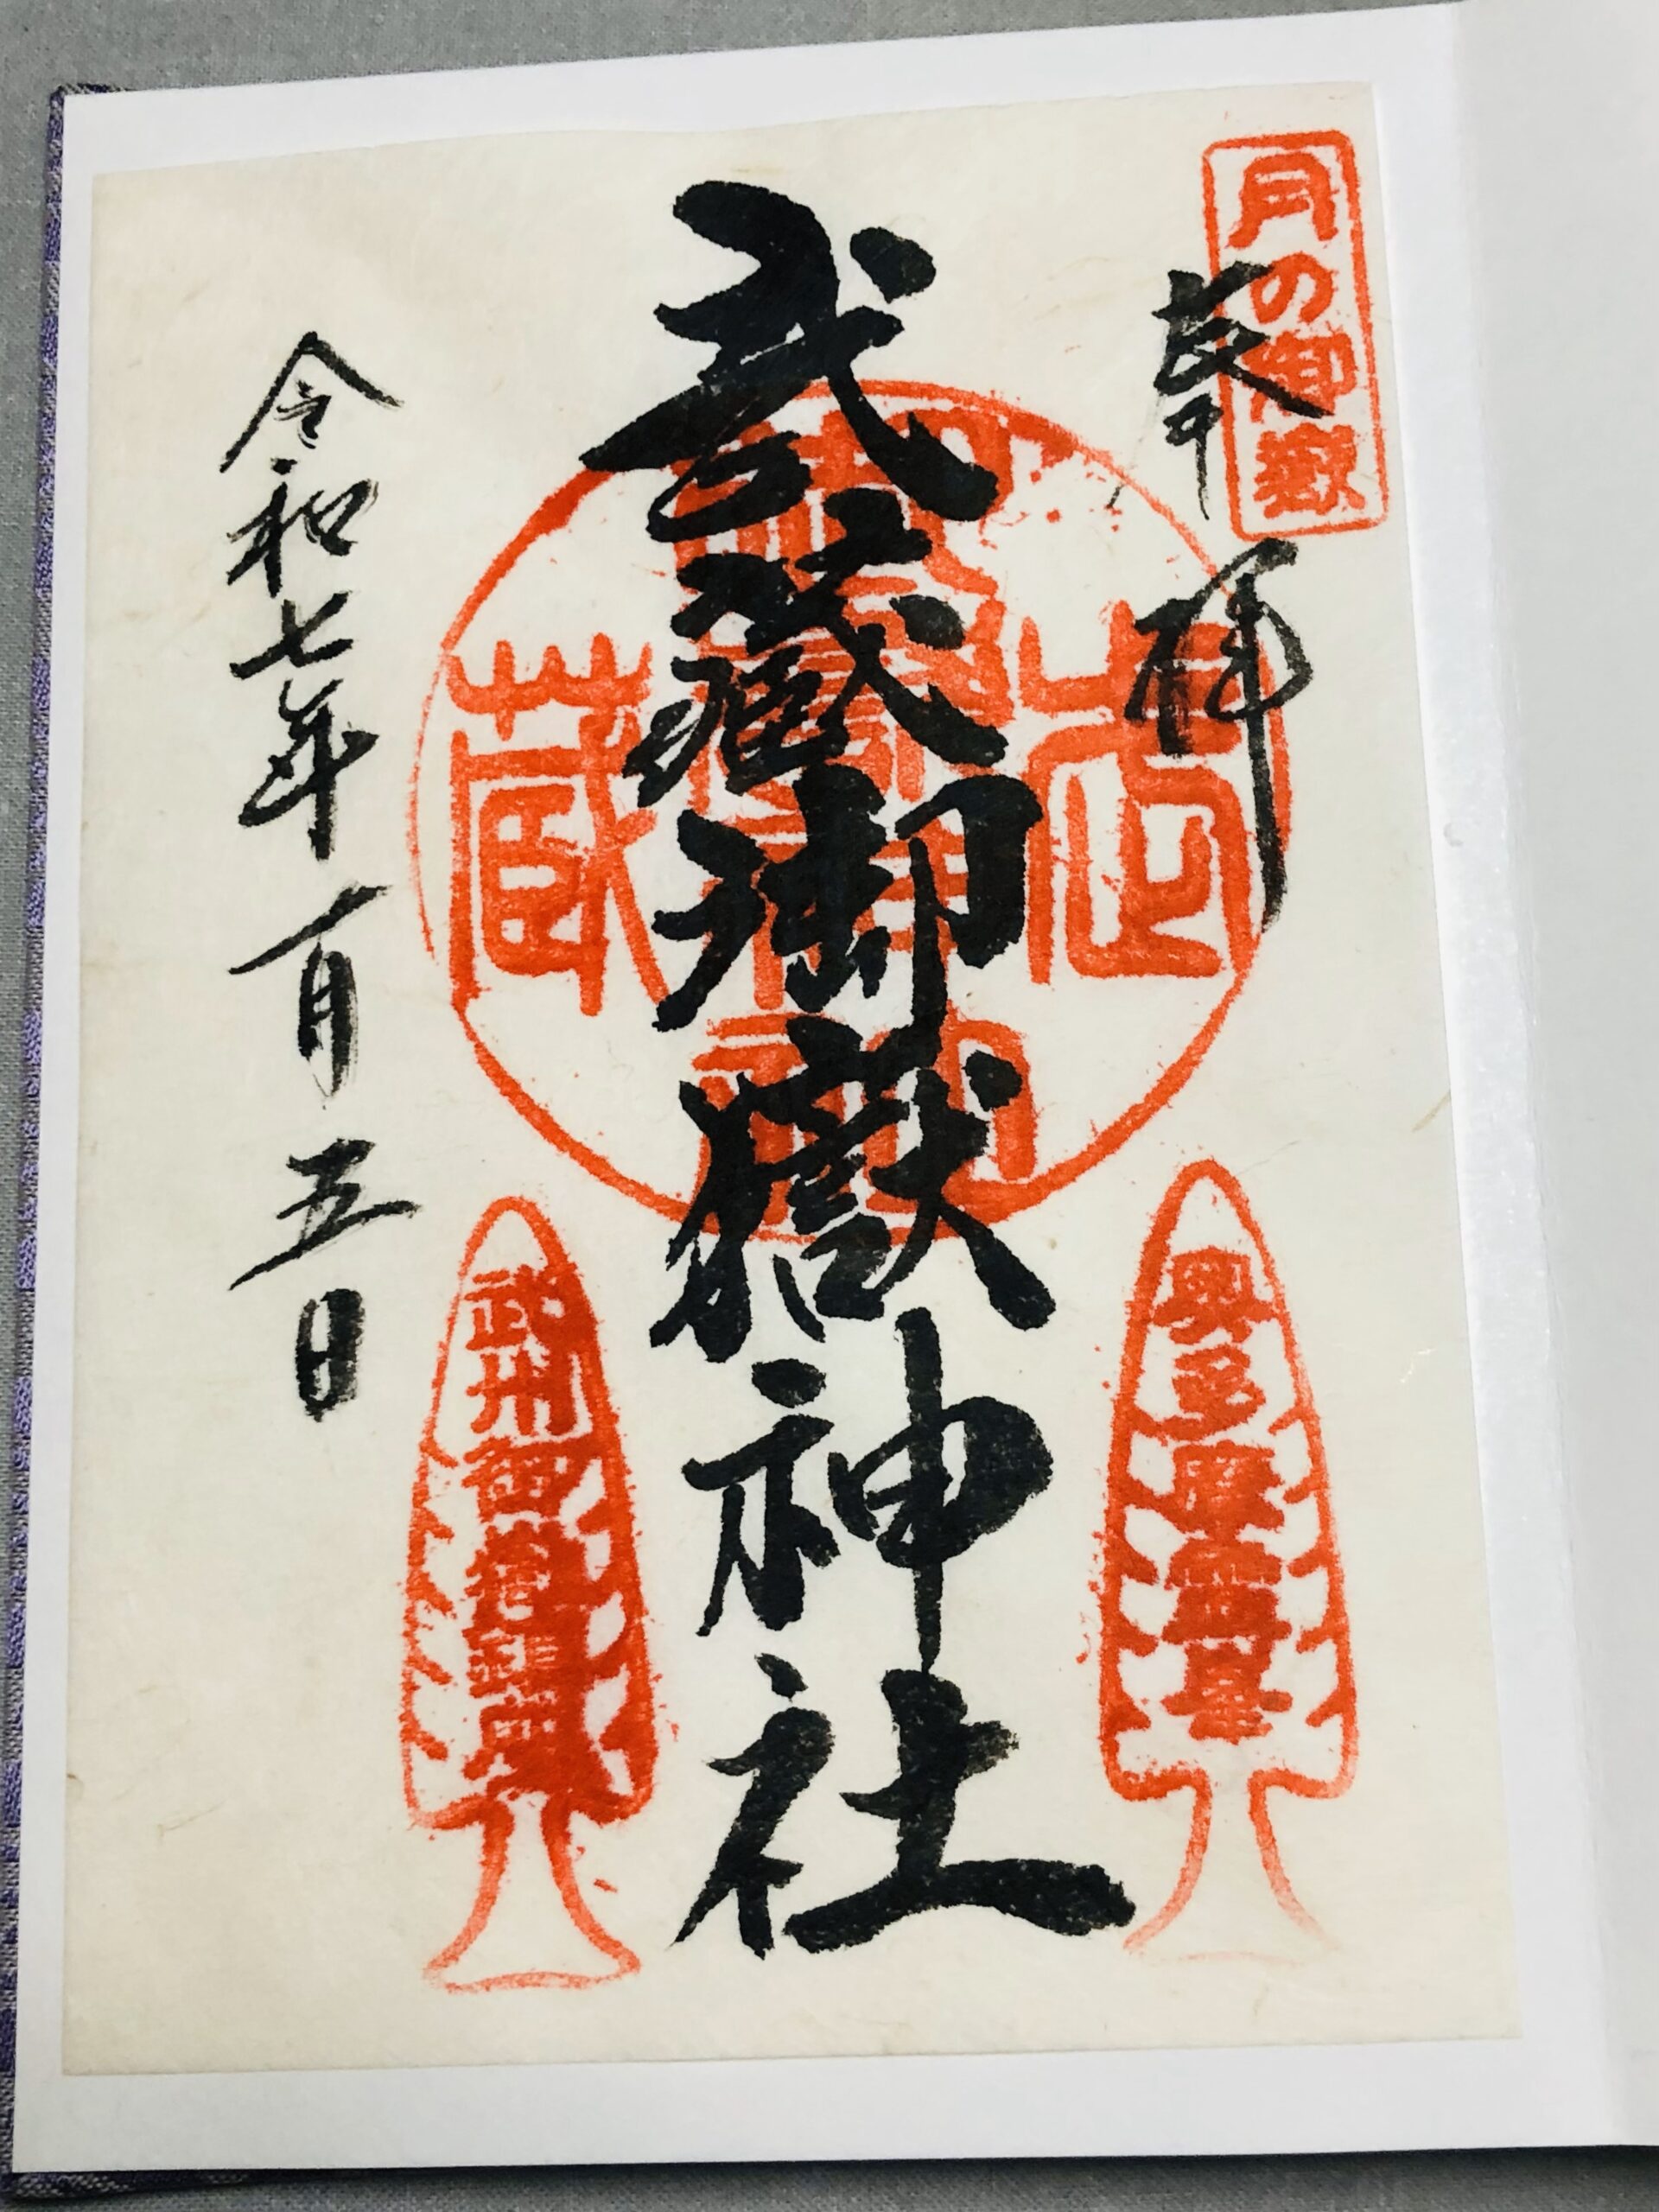 月の御嶽
奉拝
奥多摩霊峯
武蔵御嶽神社
武蔵
武州御嶽
令和七年一月五日